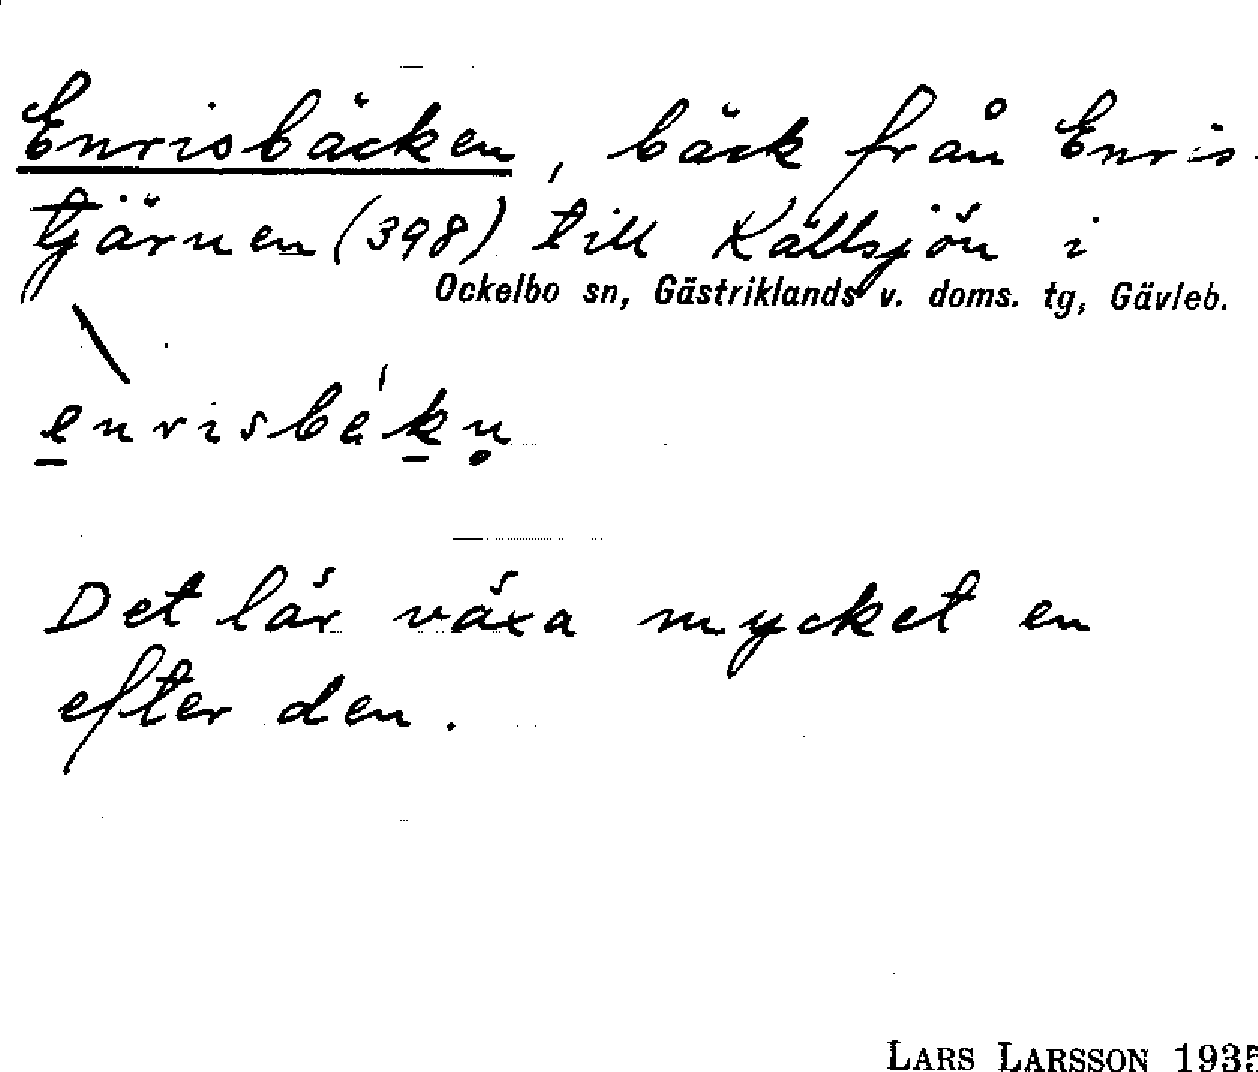 Enrisbäcken, bäck från Enris-
tjärnen (398) till Källsjön i
Ockelbo sn, Gästriklands v. doms. tg, Gävleb.
enrisbäkn̥
Det lär växa mycket en
efter den.
LARS LARSSON 1935